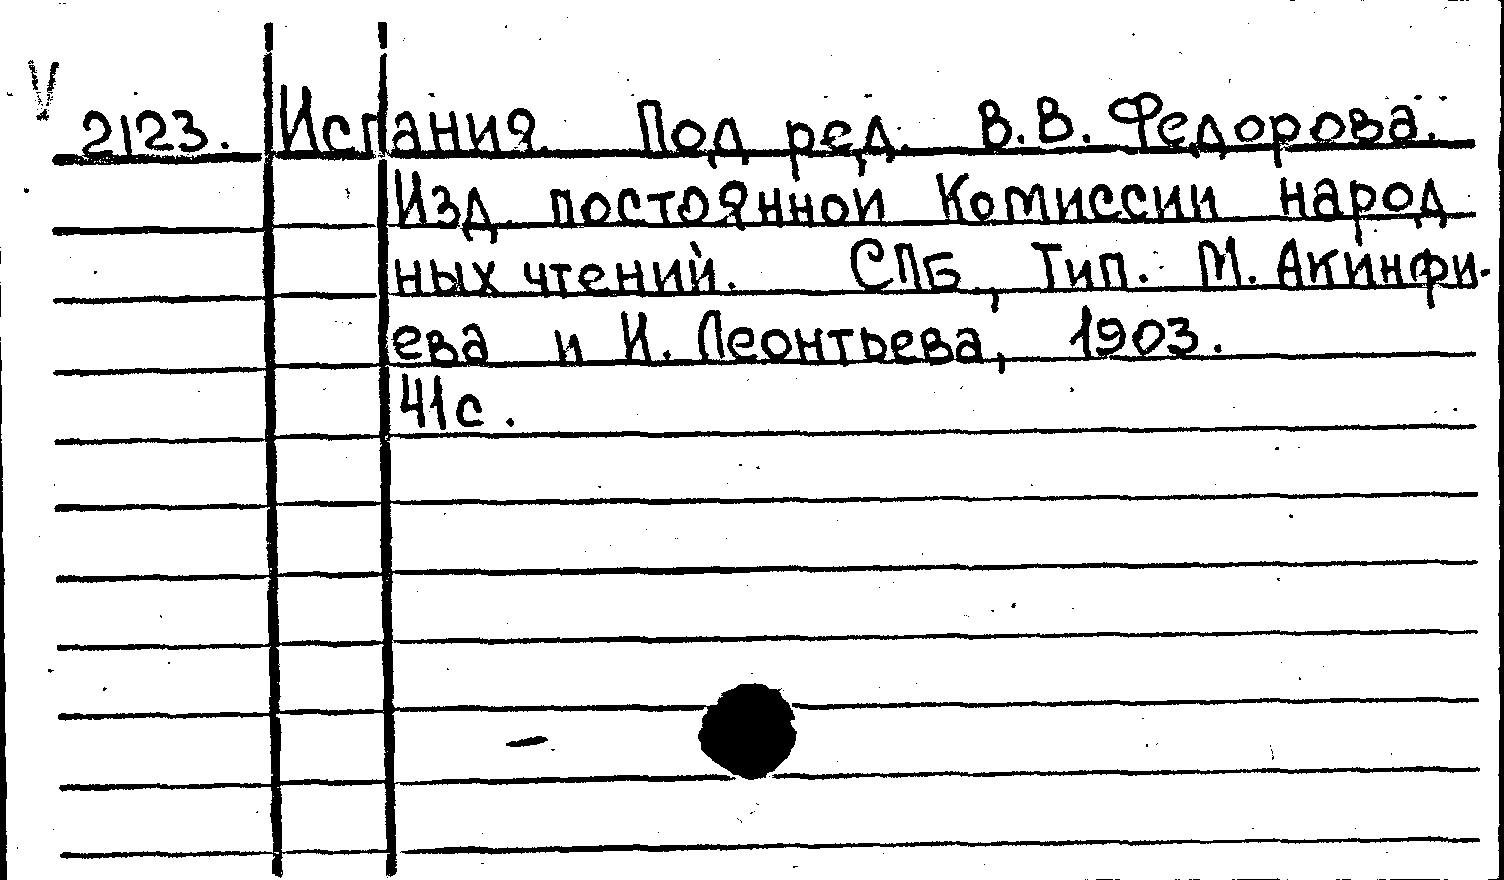 V
2123. Испания. Под ред. В.В. Федорова.
Изд. постоянной Комиссии народ
ных чтений. СПБ., Тип. М. Акинфи-
ева и И. Леонтьева, 1903.
41с.